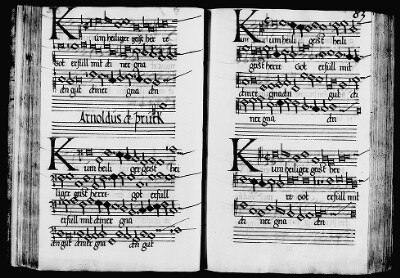 Kum heiliger geist her re
Got erfüll mit di ner gna
den gut deiner gna den
Arnoldus de pruck
Kum heili ger geist her
liger geist herre Got erfull
erfull mit deiner gna
den gut deiner gna den gut
83
Kum heili geist heili
geist herre Got erfull mit
deiner gnaden gut di
ner gna den
Kum heiliger geist her
re Got erfull mit
di ner gna den